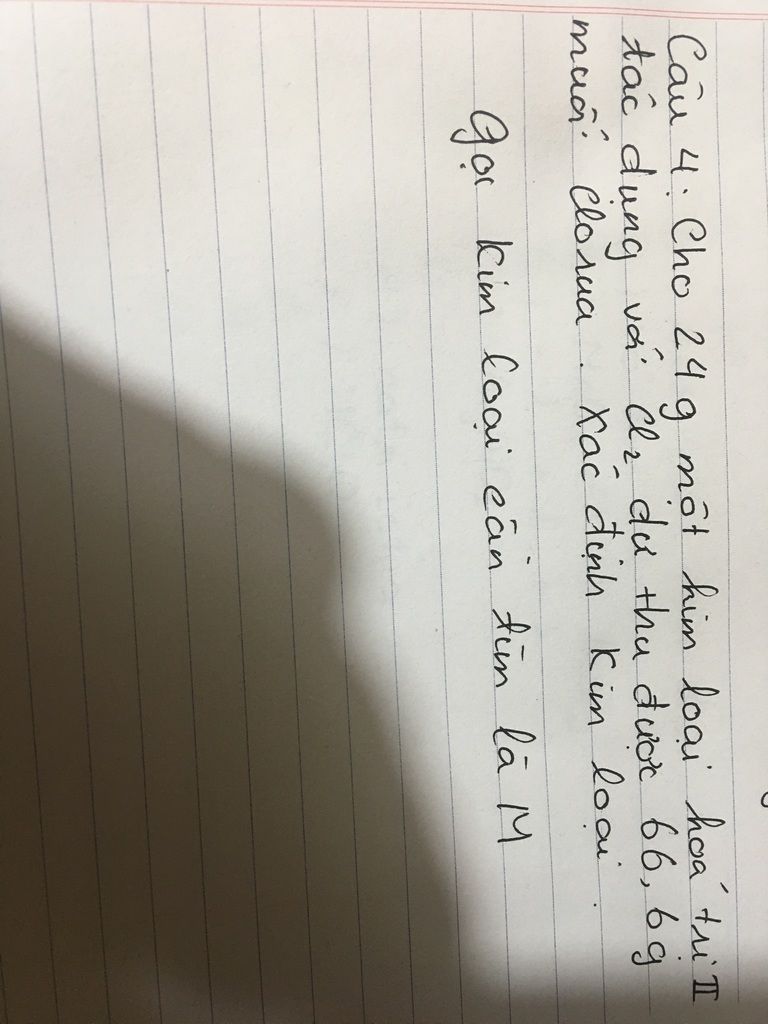 Câu 4. Cho 24 g một kim loại hoá trị II
tác dụng với Cl2 dư thu được 66,6g
muối clorua. Xác định kim loại.
Gọi kim loại cần tìm là M